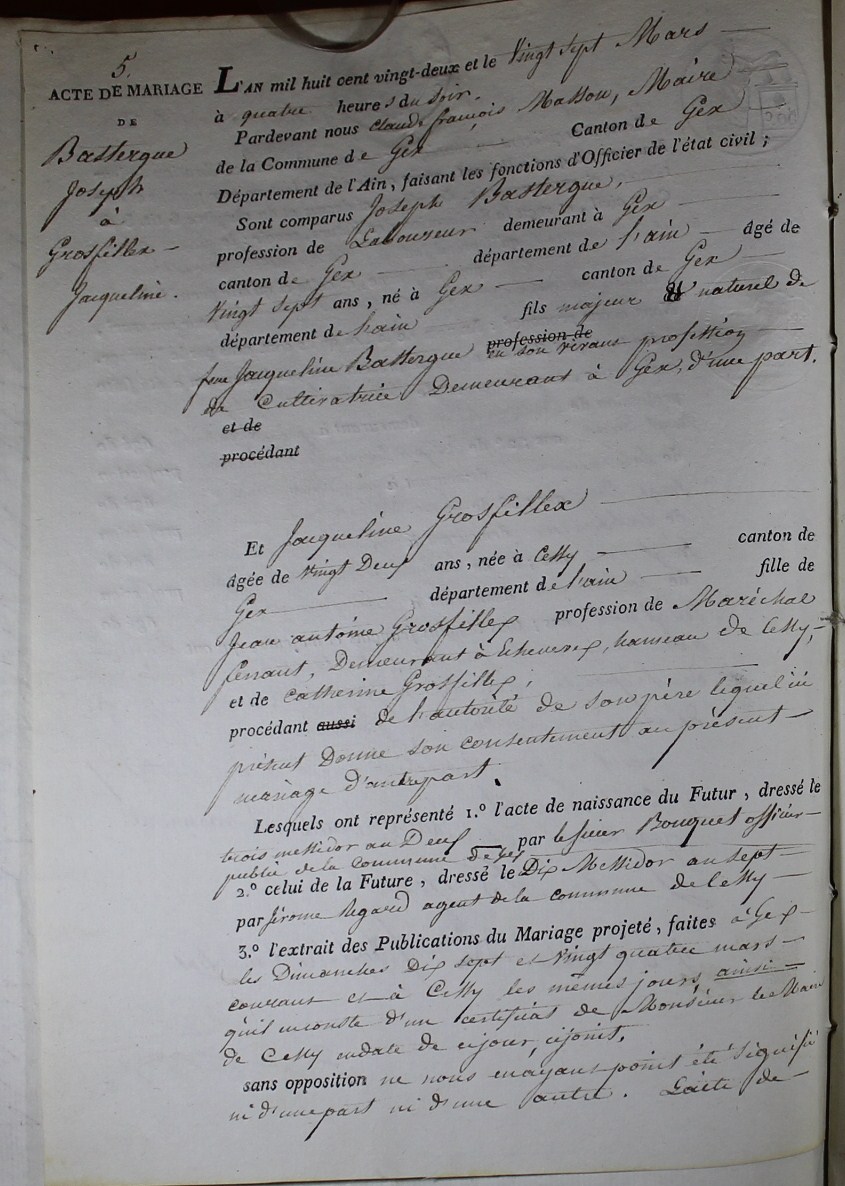 5.
ACTE DE MARIAGE
DE
Bastergue
Joseph
à
Grosfillex
Jacqueline.
L'AN mil huit cent vingt-deux et le Vingt sept Mars
à quatre heures du Soir.
Pardevant nous Claude françois Masson, Maire
de la Commune de Gex Canton de Gex
Département de l'Ain, faisant les fonctions d'Officier de l'état civil ;
Sont comparus Joseph Bastergue,
profession de Laboureur demeurant à Gex
canton de Gex département de l'ain âgé de
Vingt sept ans, né à Gex canton de Gex
département de L'ain fils majeur naturel de
Jacqueline Bastergue profession de en son vivant profession
de Cultivatrice Demeurant à Gex, d'une part.
et de
procédant
Et Jacqueline Grosfillex
âgée de Vingt Deux ans, née à Cessy canton de
Gex département de l'ain fille de
Jean antoine Grosfillex profession de Maréchal
ferrant, Demeurant à Echevenex, hameau de Cessy,
et de Catherine Grosfillex,
procédant aussi de l'autorité de son père lequel ici
présent Donne son consentement au présent
mariage d'autre part
Lesquels ont représenté 1.º l'acte de naissance du Futur, dressé le
trois messidor an Deux par le sieur Bouquet officier
public de la commune de Gex
2.º celui de la Future, dressé le Dix Messidor an sept
par Jérome Regard agent de la commune de Cessy
3.º l'extrait des Publications du Mariage projeté, faites à Gex
les Dimanches Dix sept et Vingt quatre mars
courant et à Cessy les mêmes jours, ainsi
qu'il en conste d'un certificat de Monsieur le Maire
de Cessy en date de ce jour, cijoint,
sans opposition ne nous en ayant point été signifié
ni d'une part ni d'une autre. L'acte de